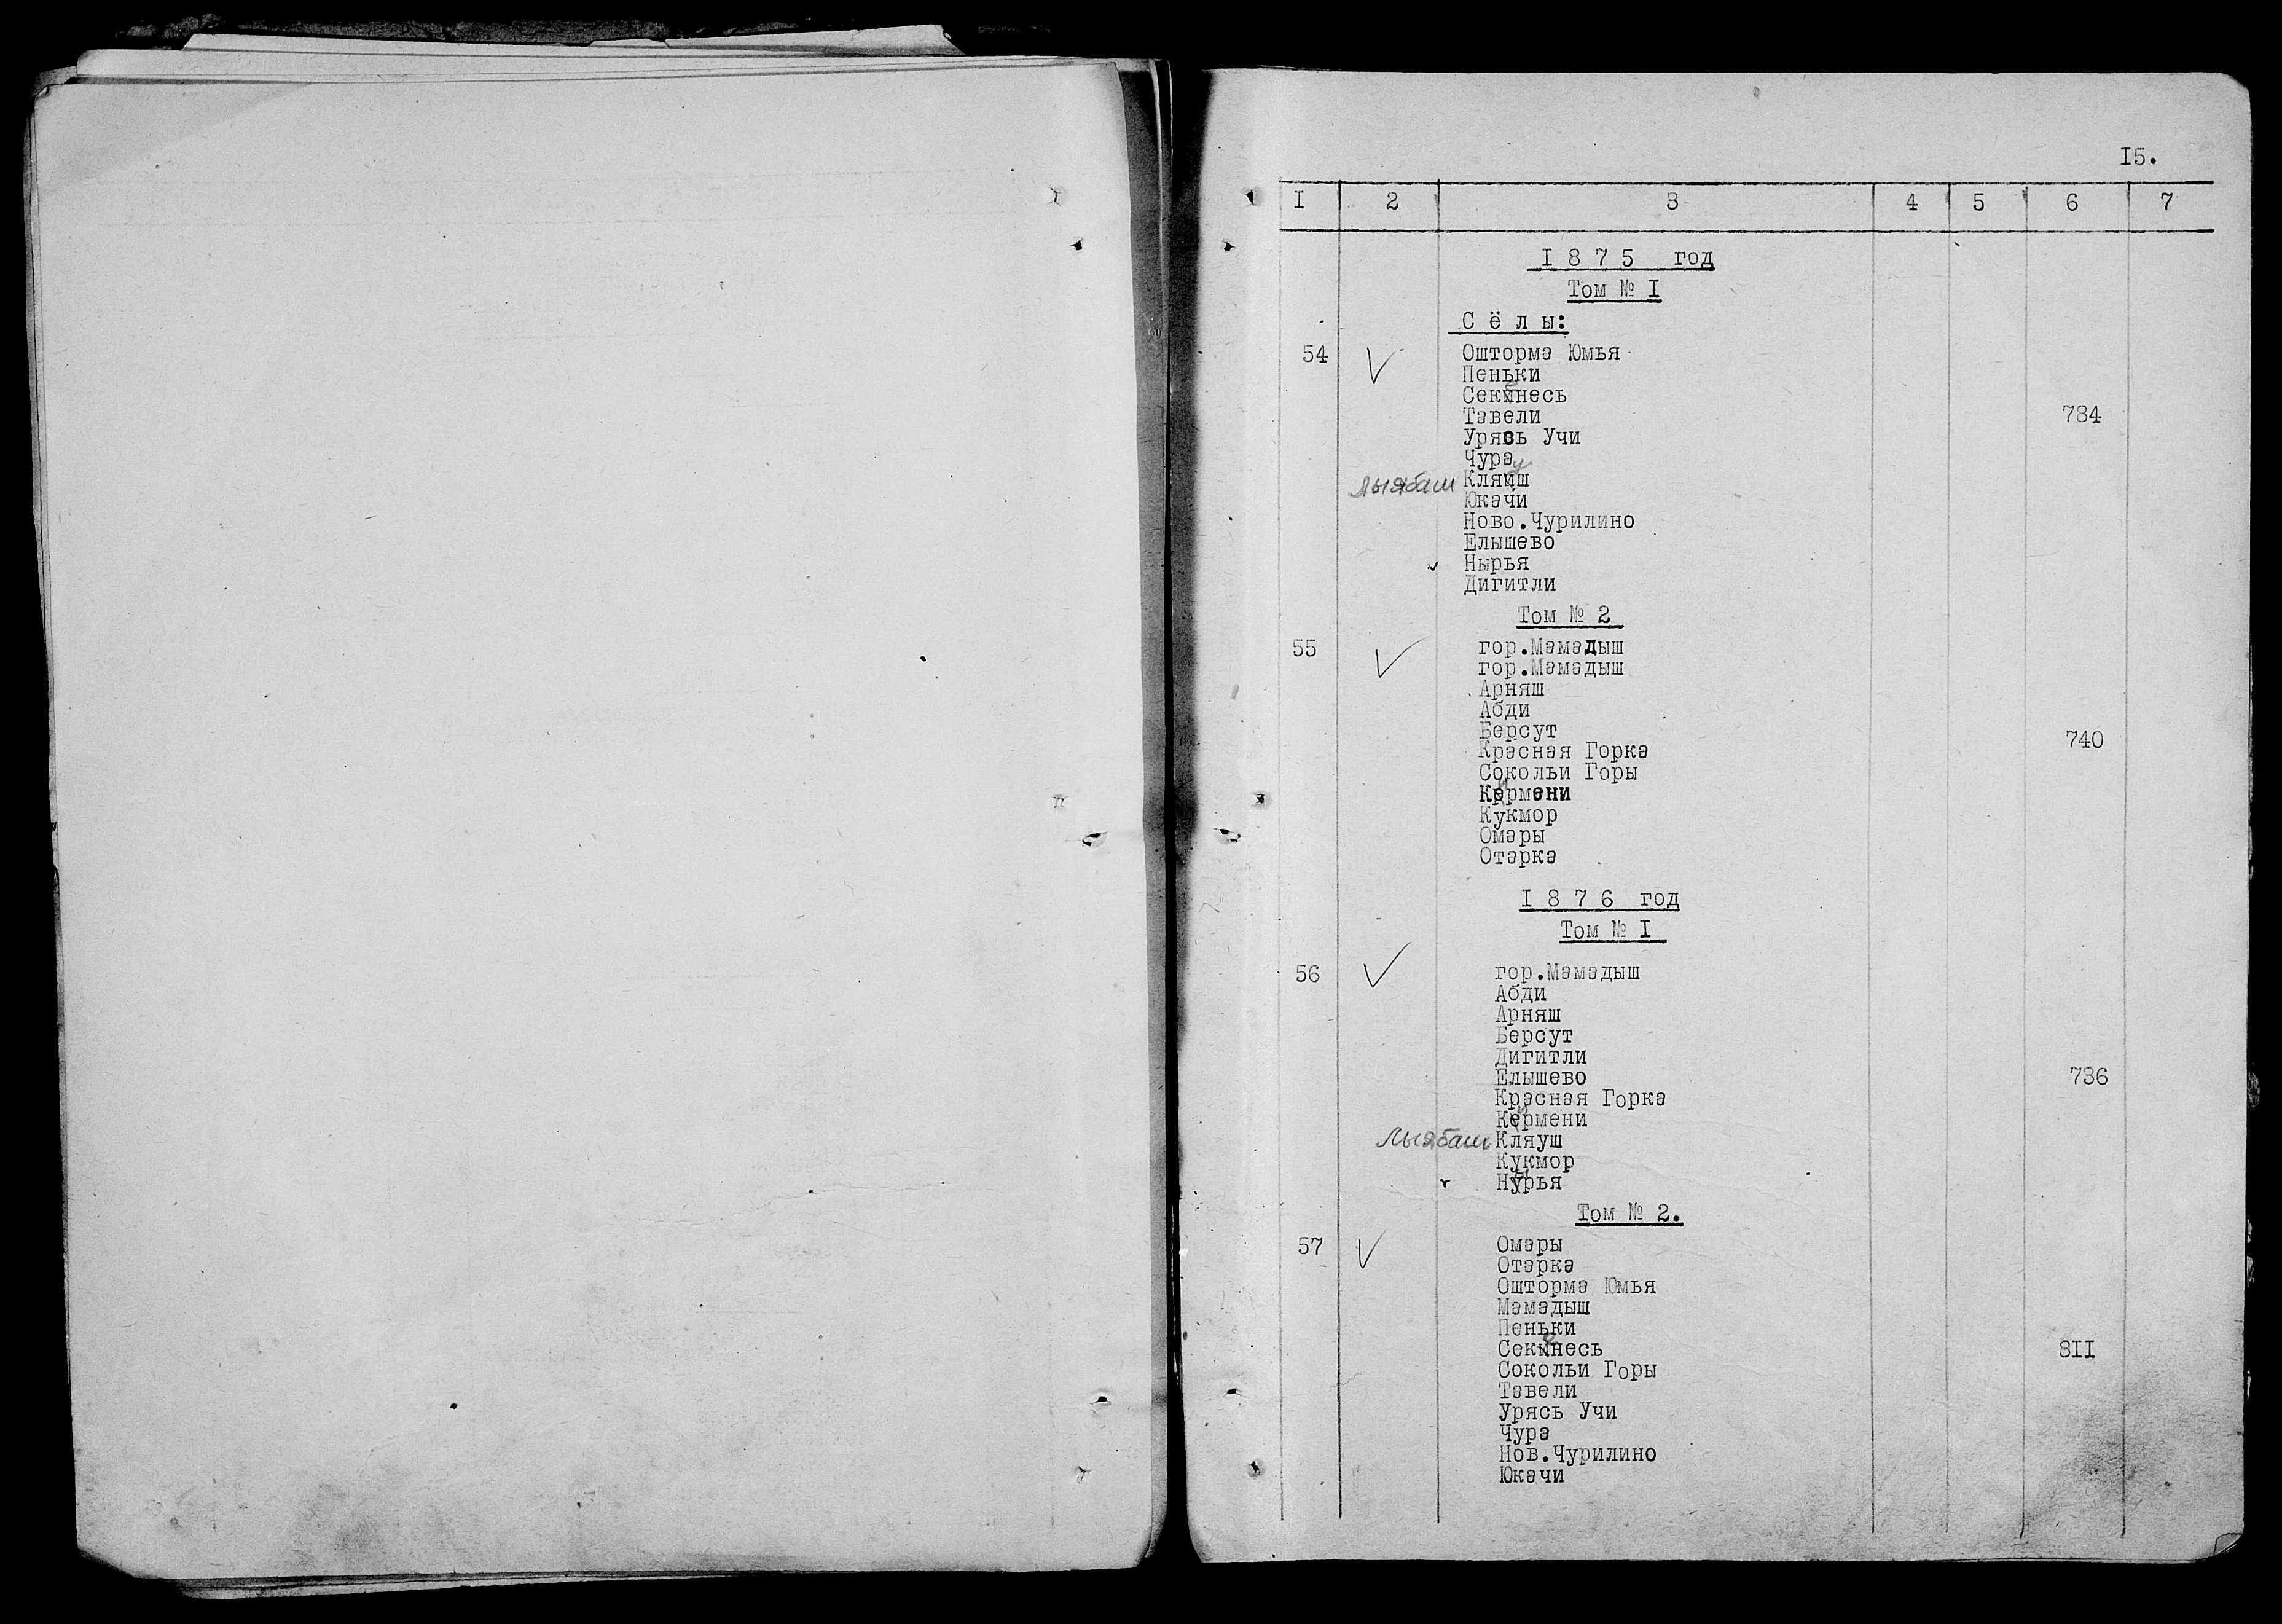 I5.
I 2 3 4 5 6 7
I 8 7 5 год
Том № I
С ё л ы:
54 Ошторма Юмья
Пеньки
Секенесь
Тавели 784
Урясь Учи
Чура
Кляуш
Юкачи
Ново.Чурилино
Елышево
Нырья
Дигитли
Том № 2
55 гор.Мамадыш
гор.Мамадыш
Арняш
Абди
Берсут
Красная Горка 740
Сокольи Горы
Кирмени
Кукмор
Омары
Отарка
I 8 7 6 год
Том № I
56 гор.Мамадыш
Абди
Арняш
Берсут
Дигитли
Елышево 736
Красная Горка
Кирмени
Лыябаш Кляуш
Кукмор
Нырья
Том № 2.
57 Омары
Отарка
Ошторма Юмья
Мамадыш
Пеньки
Секенесь 8II
Сокольи Горы
Тавели
Урясь Учи
Чура
Нов.Чурилино
Юкачи